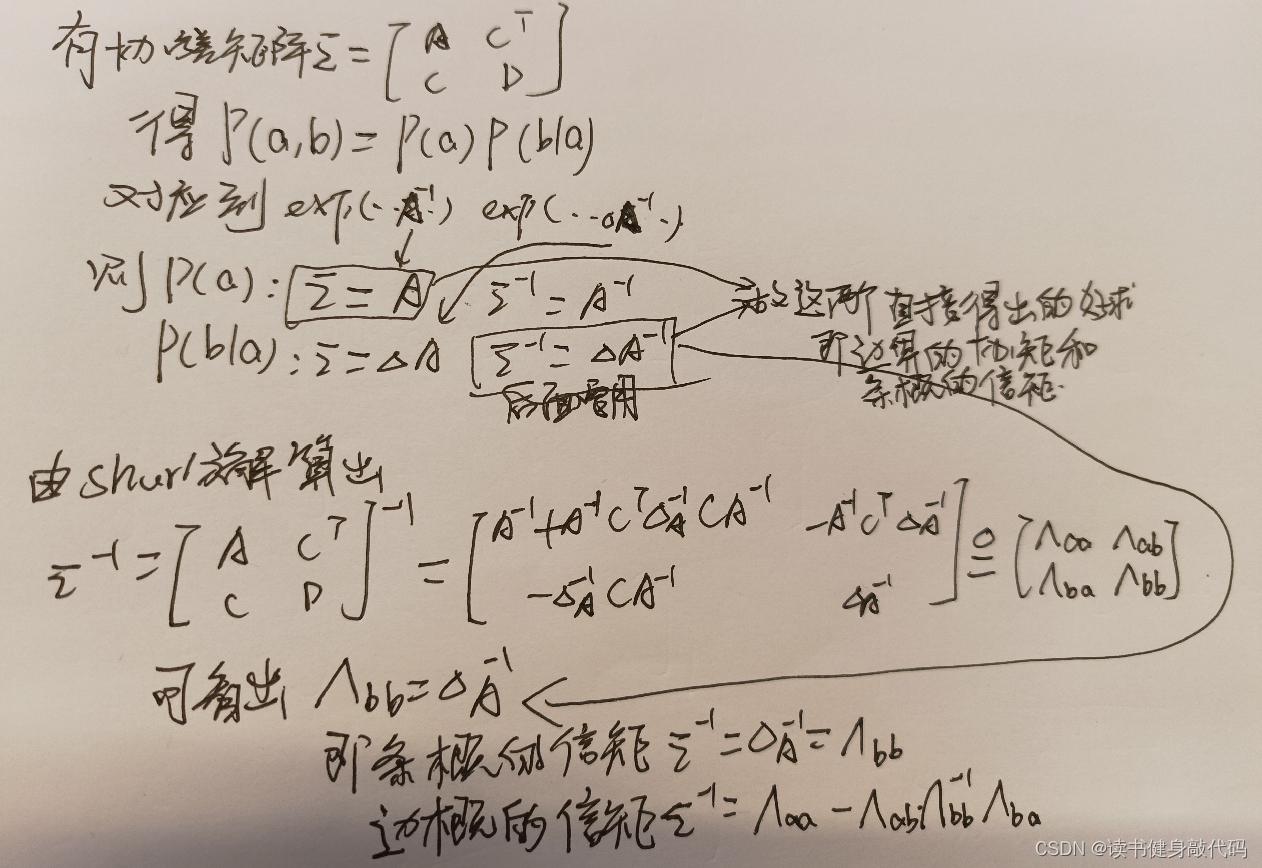 有协方差矩阵Σ = [A Cᵀ
C D]
得 P(a,b) = P(a) P(b|a)
对应到 exp(··A⁻¹·) exp(··ΔA⁻¹·)
则 P(a): Σ = A Σ⁻¹ = A⁻¹
P(b|a): Σ = ΔA Σ⁻¹ = ΔA⁻¹
后面要用
故这两个直接得出的好求
即边界的协矩和
条概的信矩.
由shur分解算出
Σ⁻¹ = [A Cᵀ
C D]⁻¹ = [A⁻¹+A⁻¹CᵀΔA⁻¹CA⁻¹ -A⁻¹CᵀΔA⁻¹
-ΔA⁻¹CA⁻¹ ΔA⁻¹] ≜ [Λaa Λab
Λba Λbb]
可看出 Λbb = ΔA⁻¹
即条概的信矩 Σ⁻¹ = ΔA⁻¹ = Λbb
边概的信矩 Σ⁻¹ = Λaa - Λab Λbb⁻¹ Λba
CSDN @读书健身敲代码